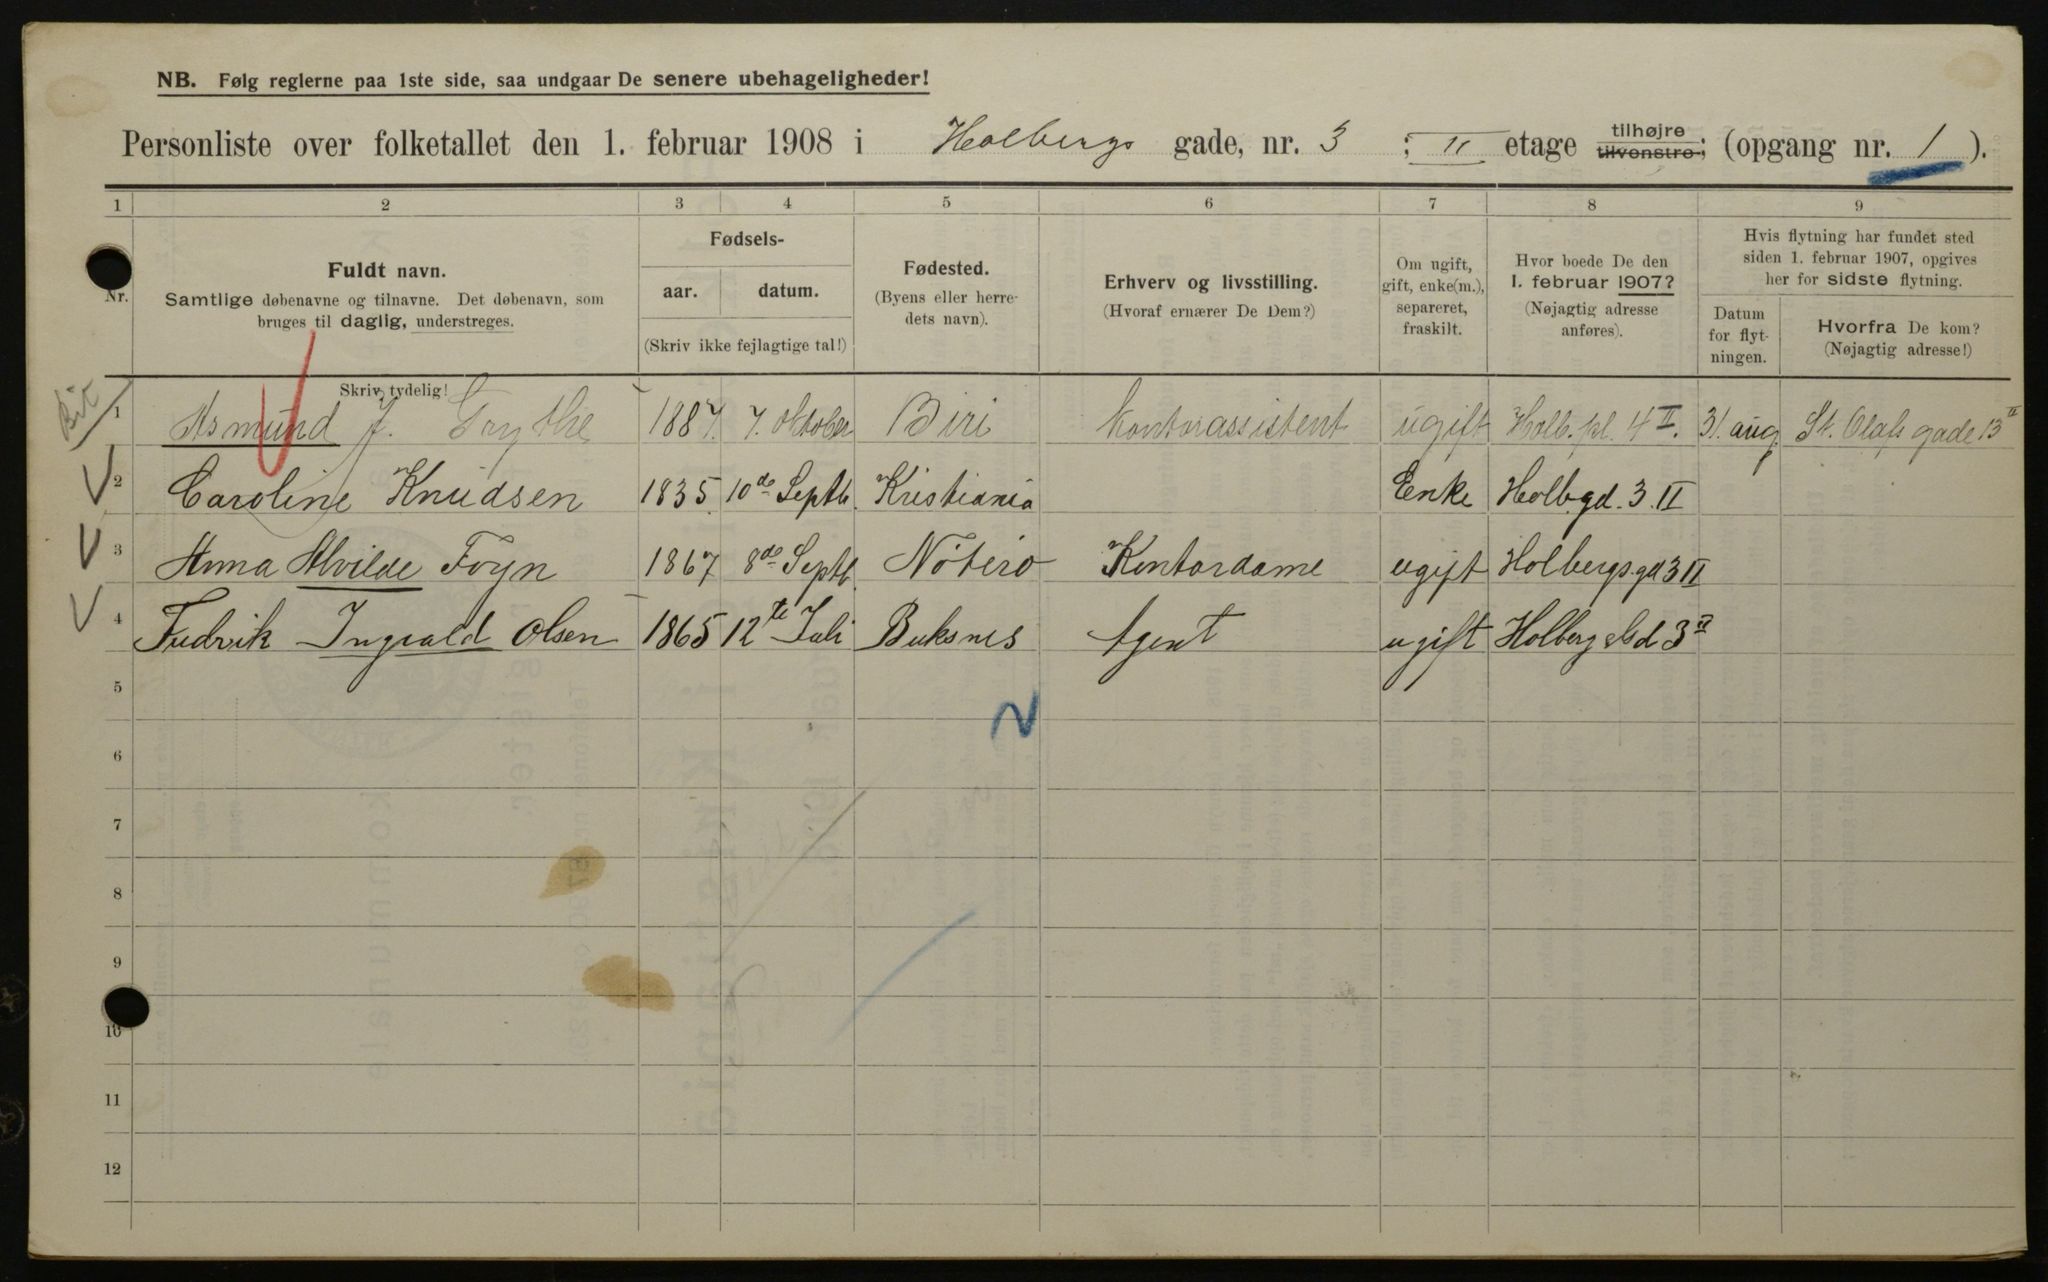 NB. Følg reglerne paa 1ste side, saa undgaar De senere ubehageligheder!
Personliste over folketallet den 1. februar 1908 i Holbergs gade, nr. 3 ; II etage tilhøjre tilvenstre; (opgang nr. 1 ).
1 2 3 4 5 6 7 8 9
Nr.
Fuldt navn.
Samtlige døbenavne og tilnavne. Det døbenavn, som
bruges til daglig, understreges.
Skriv tydelig!
Fødsels-
aar. datum.
(Skriv ikke fejlagtige tal!)
Fødested.
(Byens eller herre-
dets navn).
Erhverv og livsstilling.
(Hvoraf ernærer De Dem?)
Om ugift,
gift, enke(m.),
separeret,
fraskilt.
Hvor boede De den
1. februar 1907?
(Nøjagtig adresse
anføres).
Hvis flytning har fundet sted
siden 1. februar 1907, opgives
her for sidste flytning.
Datum
for flyt-
ningen.
Hvorfra De kom?
(Nøjagtig adresse!)
1 Asmund J. 1887. 7. Oktober Biri Kontorassistent ugift Holb. pl. 4 II. 31. aug. St. Olafs gade 13 II
2 Caroline Knudsen 1835. 10de Septb. Kristiania Enke Holb.gd. 3. II
3 Anna Alvilde Foyn 1867 8de Septb. Nøterø Kontordame ugift Holbergsgd 3 II
4 Fredrik Ingvald Olsen 1865 12te Juli Buksnes Agent ugift Holberg 3 II
5
6
7
8
9
10
11
12